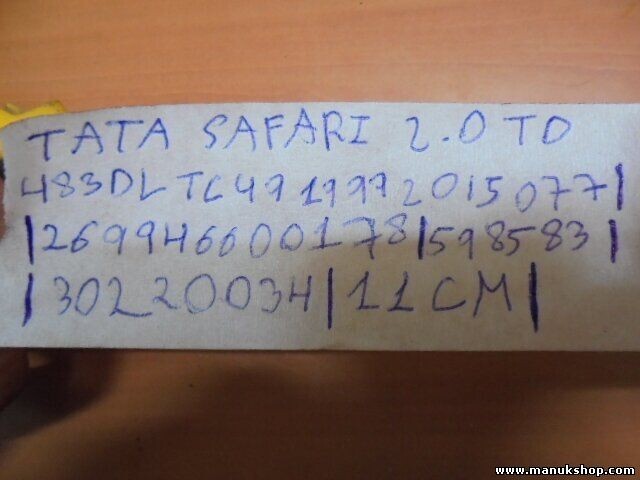 TATA SAFARI 2.0 TD
483DLTC4919992015077|
|269946600178|598583|
|30220034|11CM|
www.manukshop.com